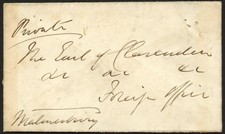 Private
The Earl of Clarendon
&c &c &c
Foreign Office
Malmesbury